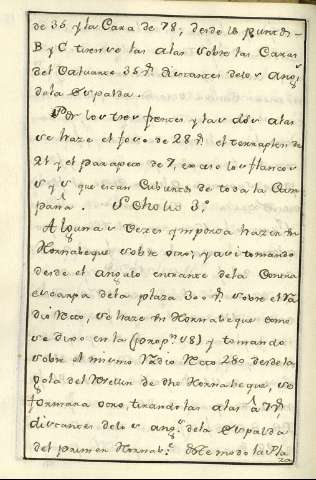 de 36 y la Cara de 78, desde los Puntos
B y C tirense las alas sobre las Caras
del Baluarte 36 tͬ. distantes delos Angˢ
dela Espalda.
Por los tres frentes y las dos alas
se haze el foso de 28 tͬ. el terraplen de
21 y el parapeto de 7, exceto los flancos
s y s que estan Cubiertos de toda la Cam
paña. Scholio 3.º
Algunas Vezes ymporta hazer Un
Hornabeque sobre otro; y assi tomando
desde el angulo entrante dela Contra
escarpa dela plaza 300 tͬ. sobre el Ra
dio Recto, se haze Un Hornabeque como
se dixo en la (propⁿ. 48) y tomando
sobre el mismo Radio Recto 280 desde la
gola del Revellin de dho Hornabeque, se
formara otro, tirando las alas à
distantes delos angˢ dela Espalda
del primer Hornabᵉ. Deste modo la Pla
za